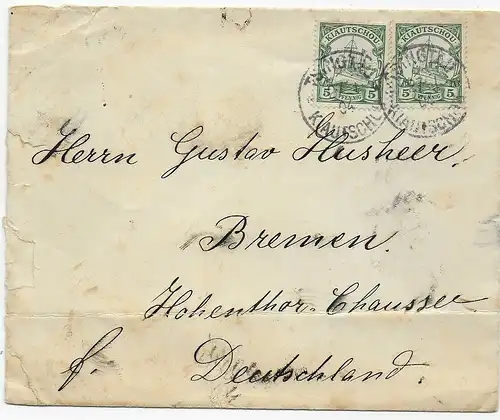 KIAUTSCHOU KIAUTSCHOU
5 PFENNIG 5 5 PFENNIG 5
TSINGTAU KIAUTSCHOU
Herrn Gustav Husheer.
Bremen.
Hohenthor-Chaussee
f.
Deutschland.